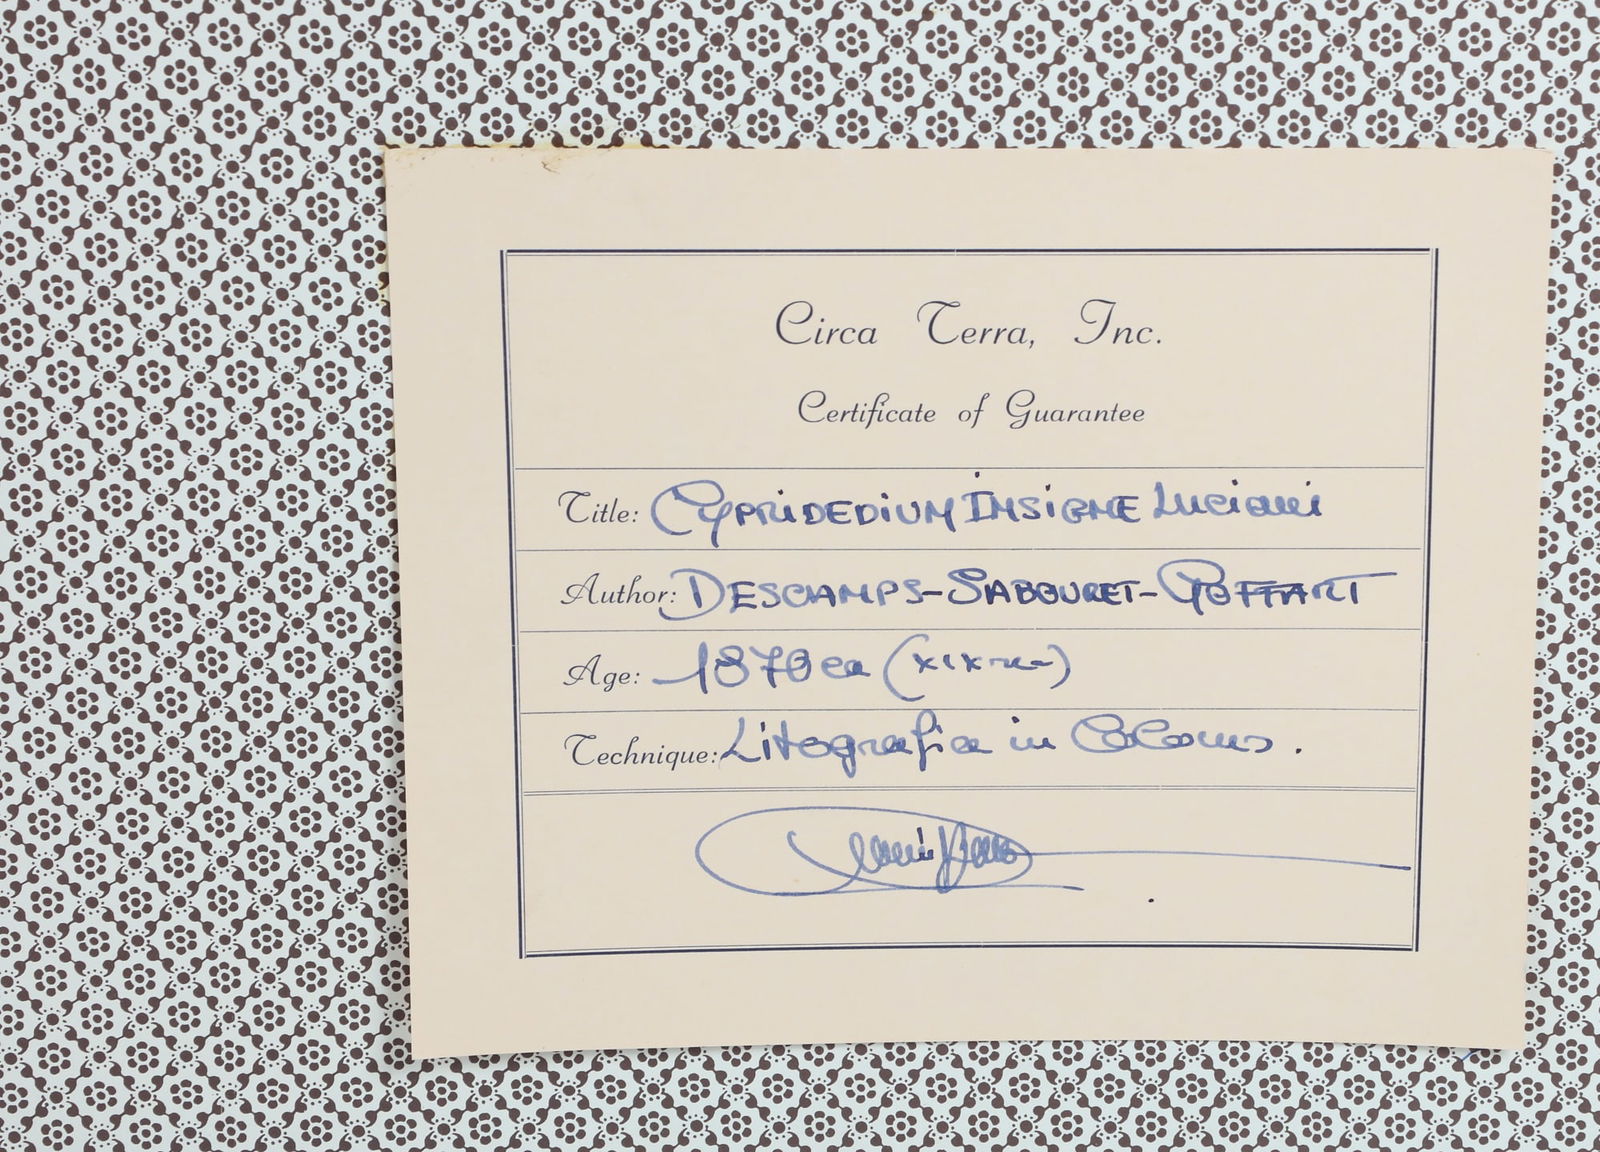 Circa Terra, Inc.
Certificate of Guarantee
Title: CYPRIDEDIUM INSIGNE Luciani
Author: DESCHAMPS-SABOURET-GOFFART
Age: 1870 ca (XIX
Technique: Litografia in Colours.